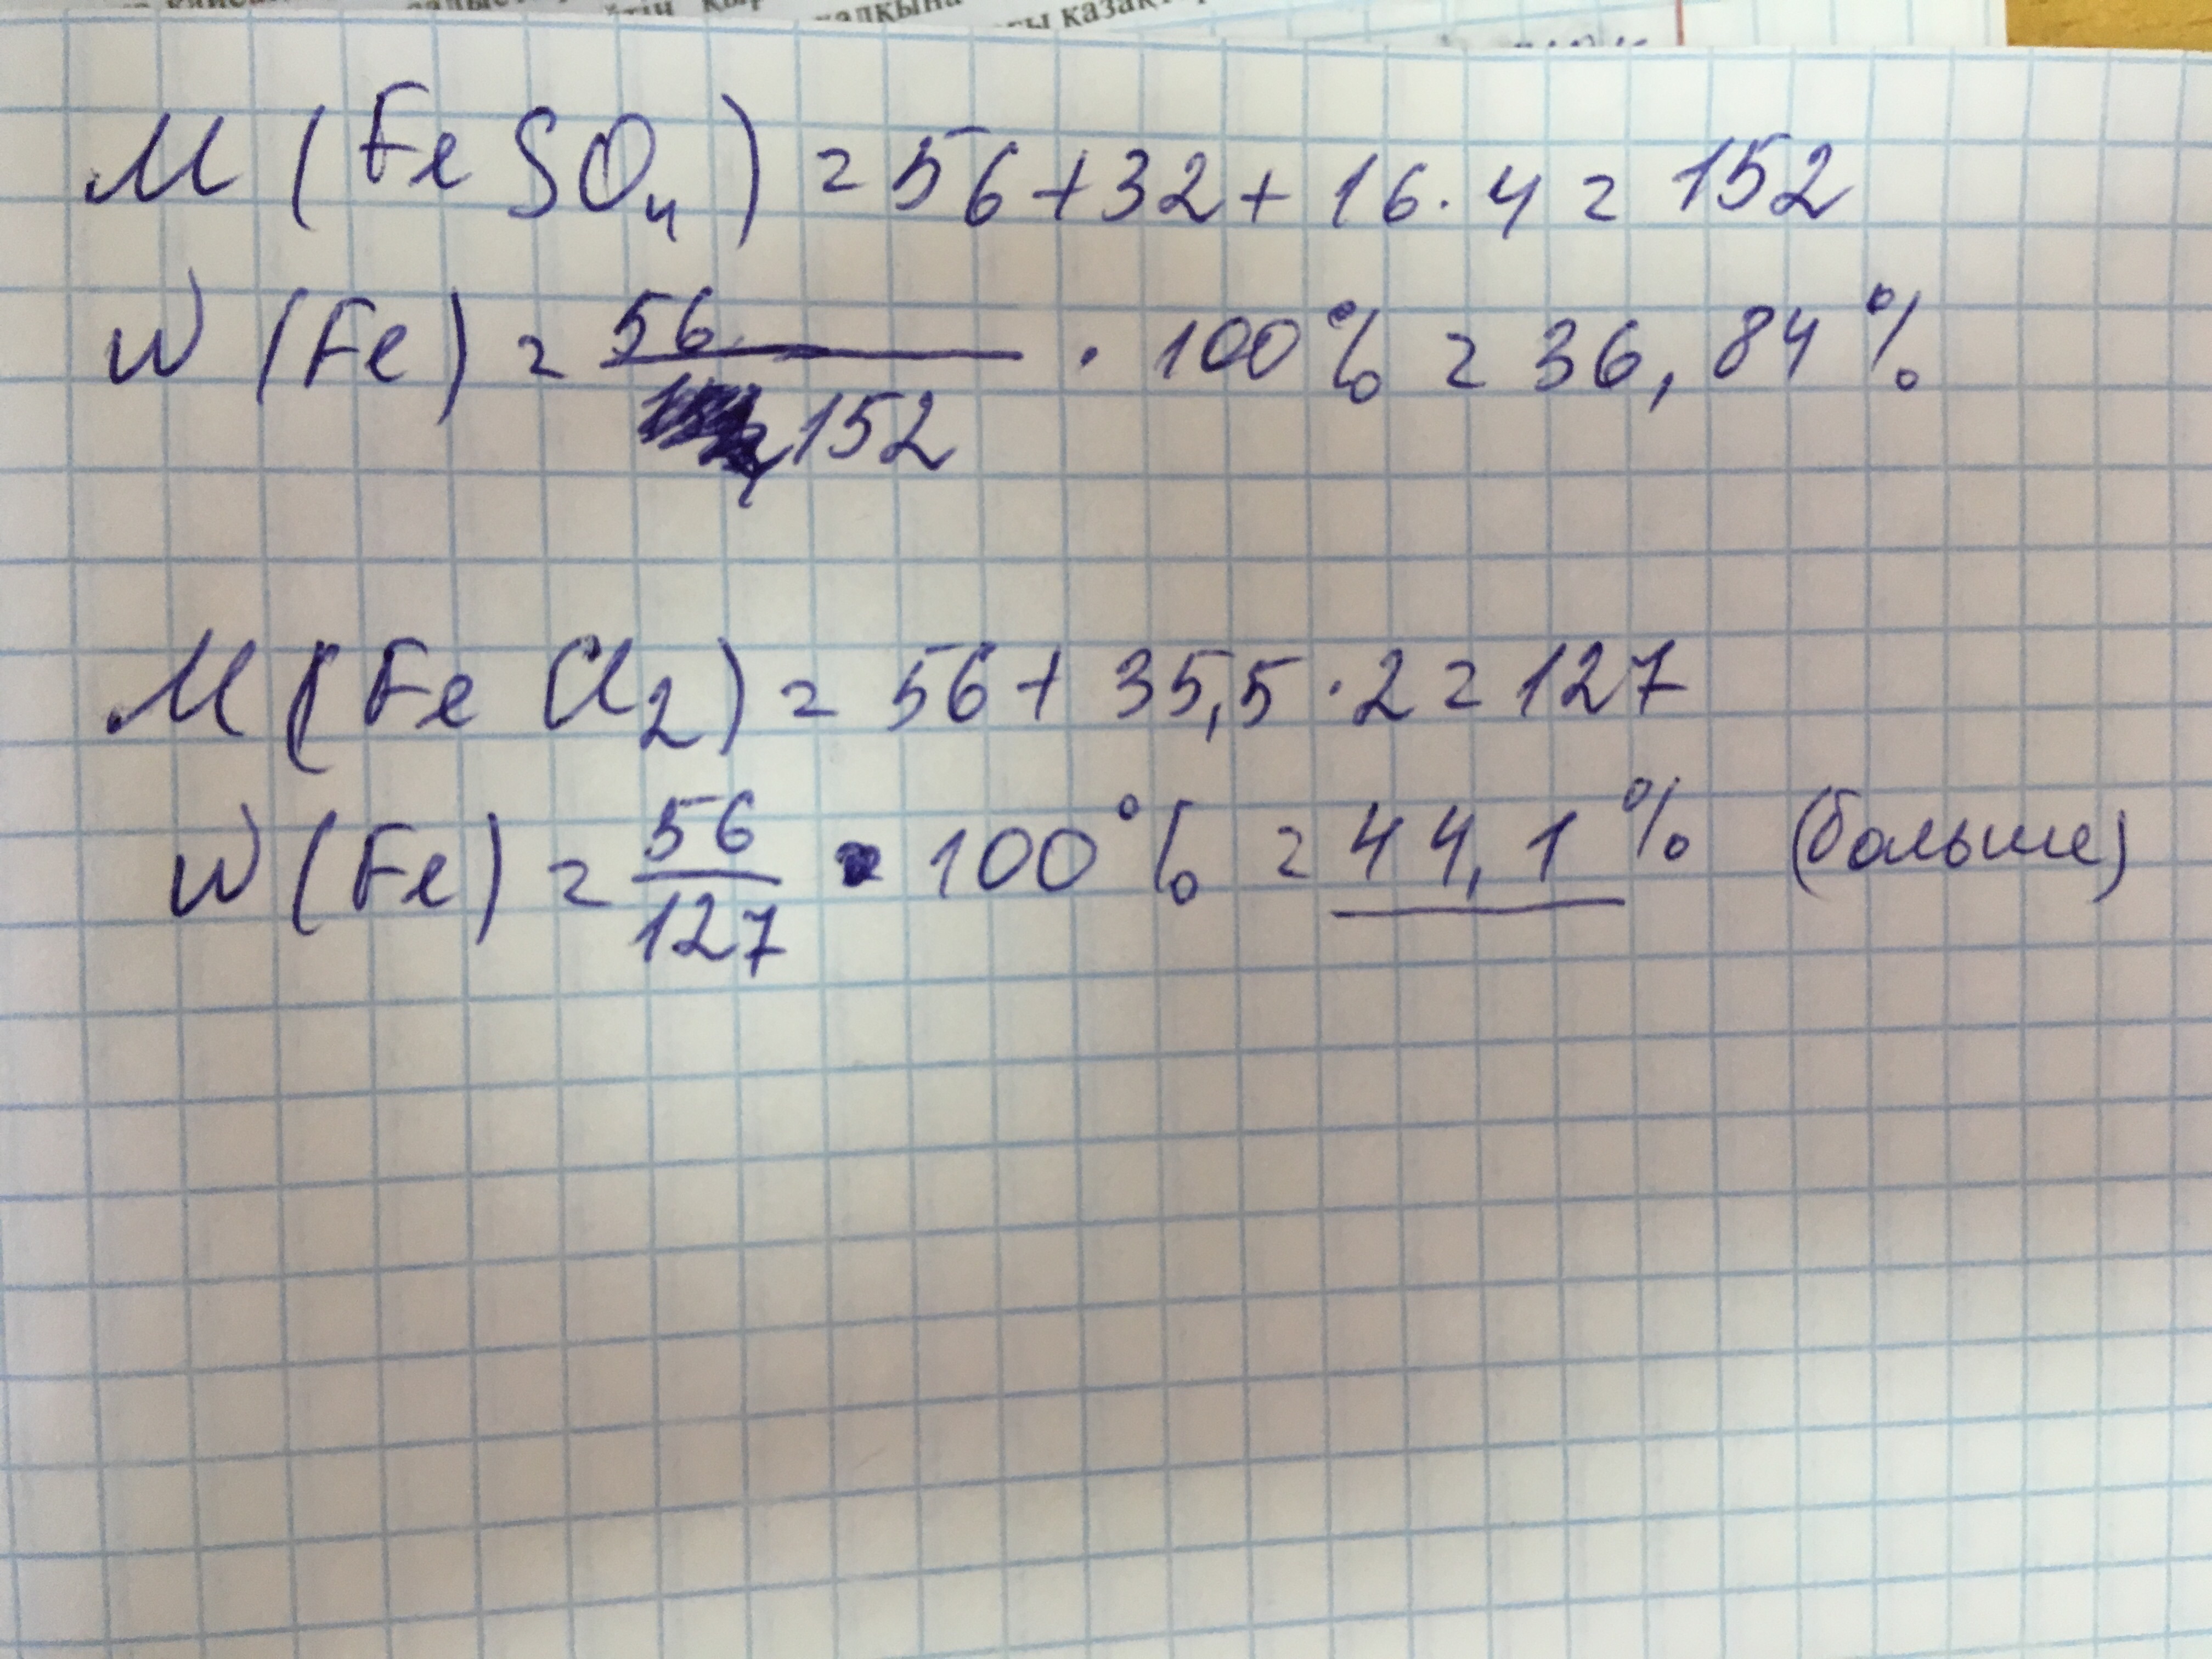 M(FeSO4) = 56+32+16·4 = 152
W(Fe) = 56/152 · 100% = 36,84%
M(FeCl2) = 56+35,5·2 = 127
W(Fe) = 56/127 · 100% = 44,1% (больше)